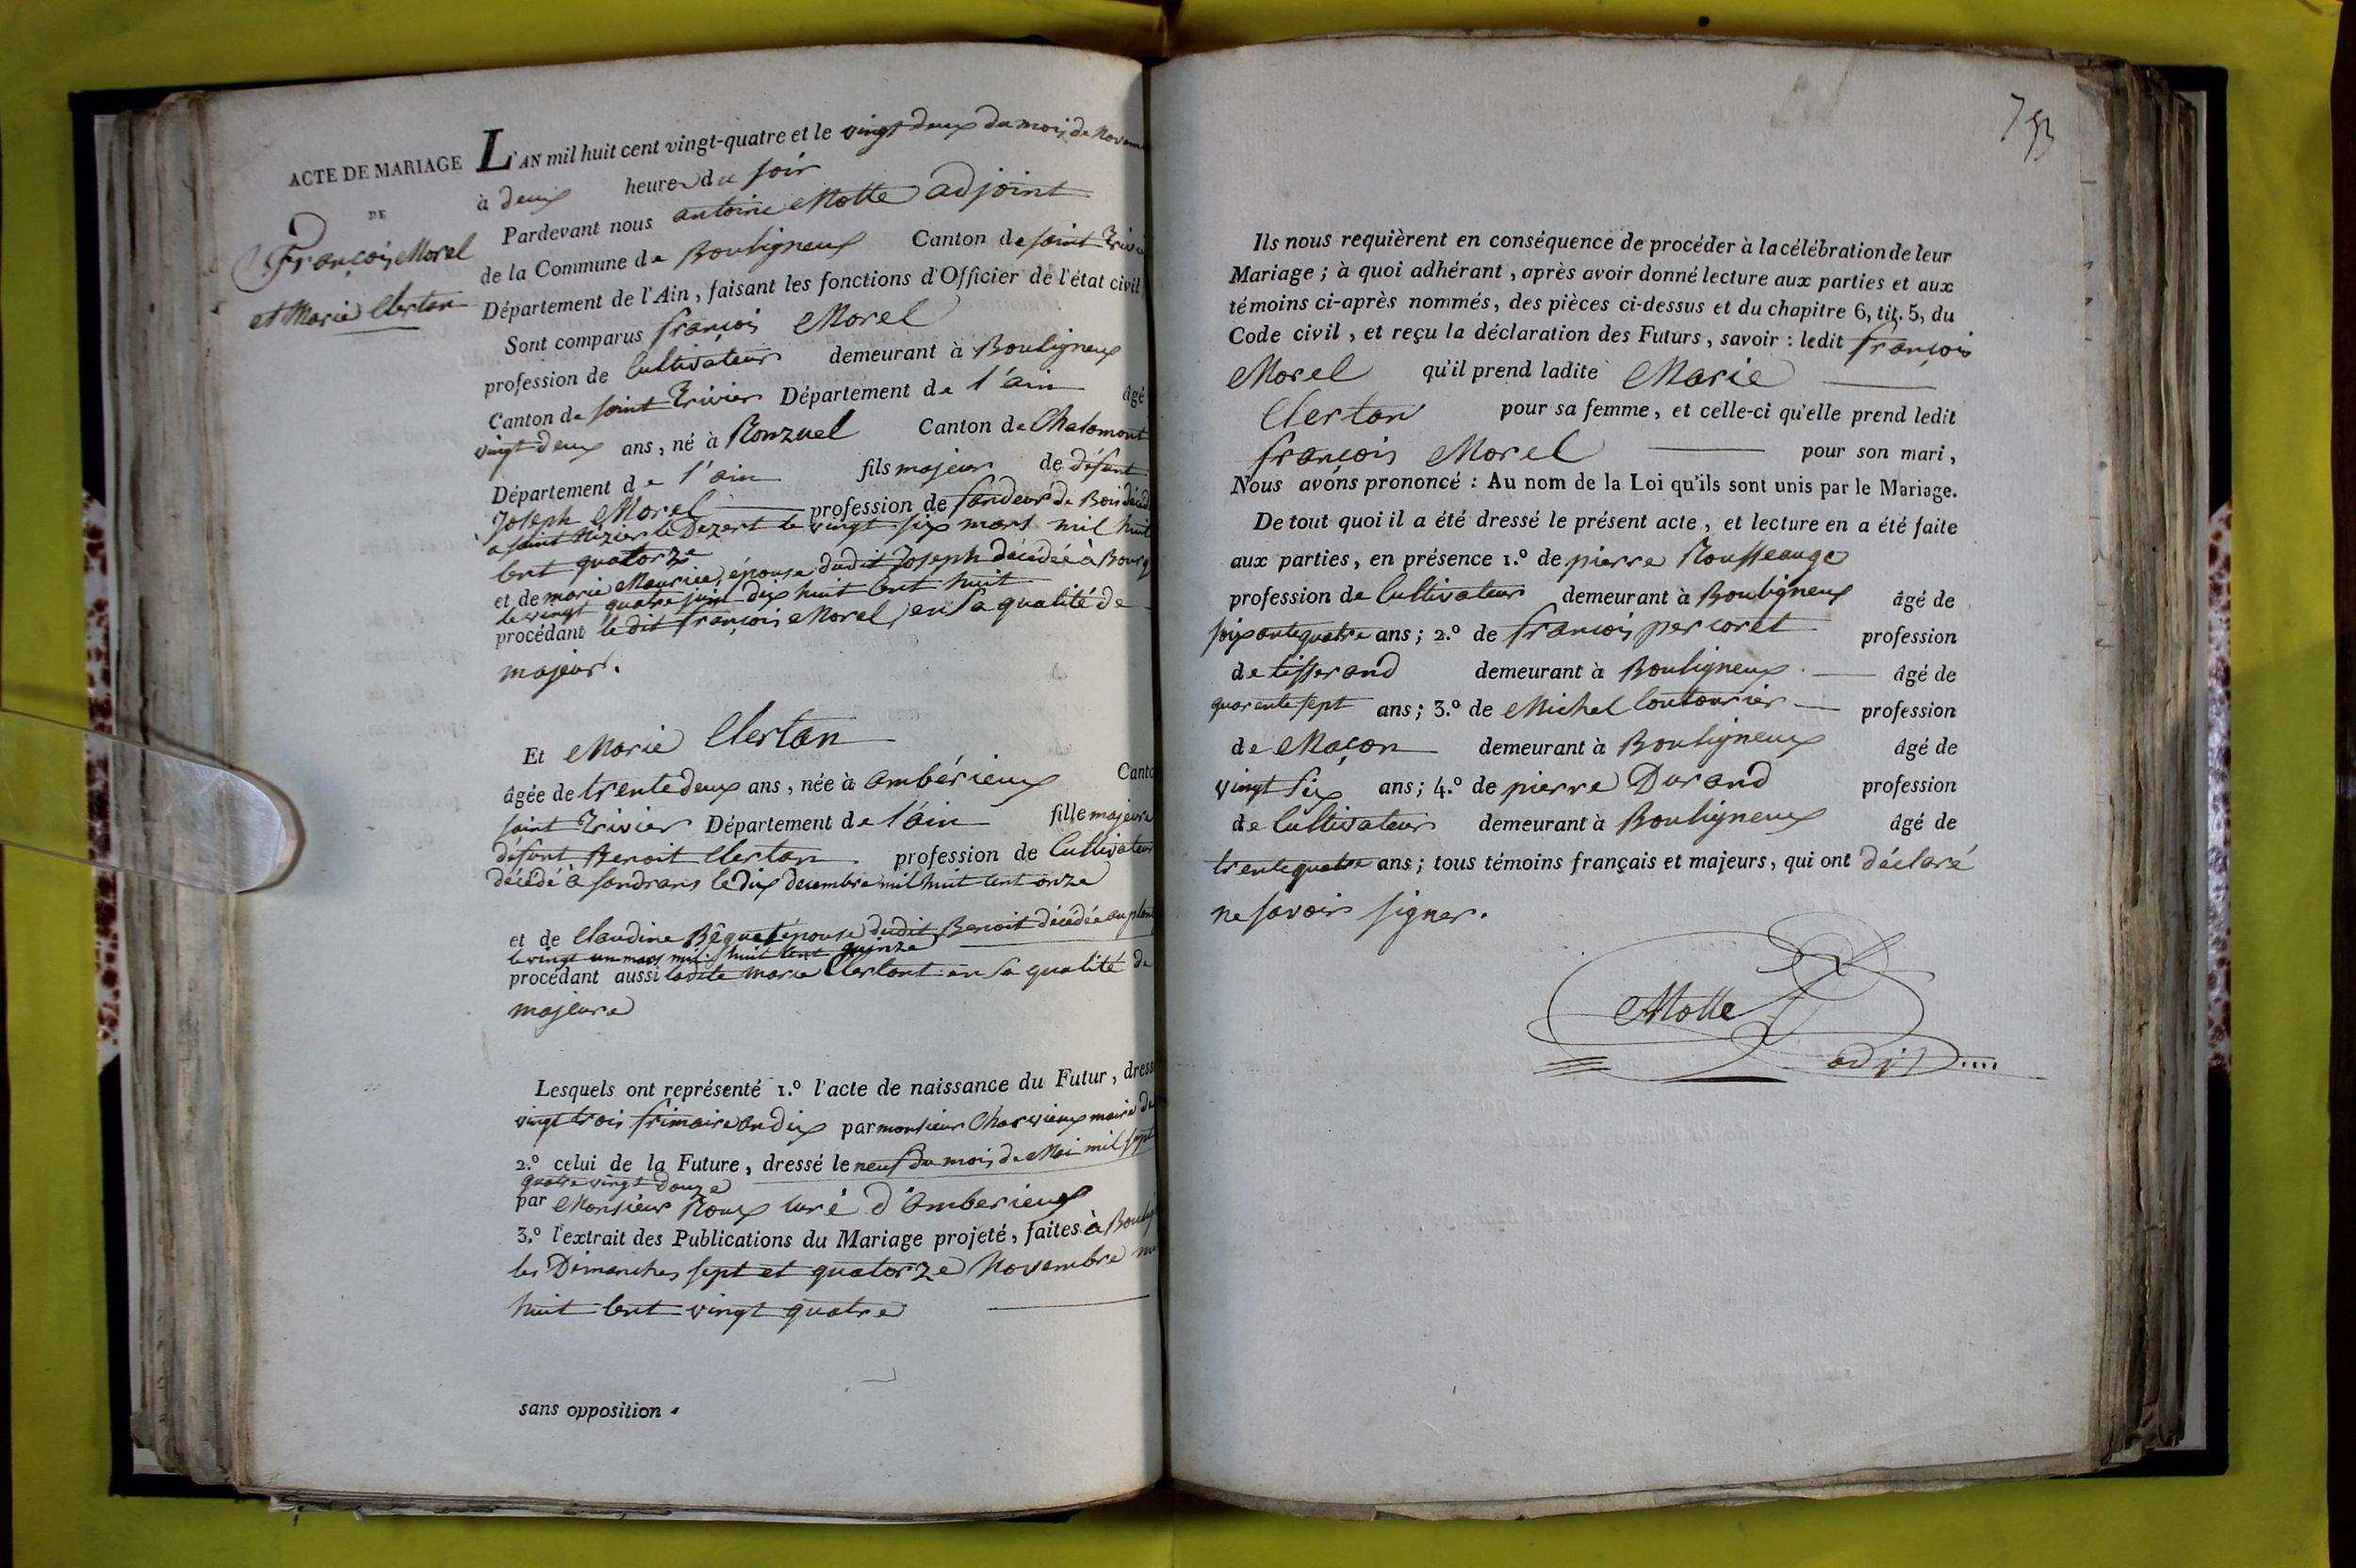 ACTE DE MARIAGE
DE
François Morel
et Marie Clertan
L'AN mil huit cent vingt-quatre et le vingt deux du mois de Novem
à deux heures du soir
Pardevant nous antoine Motte adjoint
de la Commune de Bouligneux Canton de saint Trivi
Département de l'Ain, faisant les fonctions d'Officier de l'état civil
Sont comparus françois Morel
profession de Cultivateur demeurant à Bouligneux
Canton de saint Trivier Département de l'ain âgé
vingt deux ans, né à Ronzuel Canton de Chalamont
Département de l'ain fils majeur de défunt
Joseph Morel profession de fendeur de Bois décéd
a saint Nizier le Dezert le vingt six mars mil huit
Cent quatorze
et de marie Maurice, épouse dudit Joseph décédée à Bourg
le vingt quatre juin dix huit Cent huit
procédant le dit françois Morel, en sa qualité de
majeur.
Et Marie Clertan
âgée de trente deux ans, née à ambérieux Canto
saint Trivier Département de l'ain fille majeure
défunt Benoit Clertan. profession de Cultivateur
décédé à sandrans le dix decembre mil huit Cent onze
et de Claudine Béguet épouse dudit Benoit décédée au plan
le vingt un mars mil huit Cent quinze
procédant aussi ladite marie Clertant en sa qualité de
majeure
Lesquels ont représenté 1.º l'acte de naissance du Futur, dress
vingt trois frimaire an dix par monsieur Charvieux maire de
2.º celui de la Future, dressé le neuf du mois de Mai mil sept
quatre vingt douze
par Monsieur Roux curé d'Amberieux
3.º l'extrait des Publications du Mariage projeté, faites à Boulig
les Dimanches sept et quatorze Novembre m
huit Cent vingt quatre
sans opposition.
Ils nous requièrent en conséquence de procéder à la célébration de leur
Mariage; à quoi adhérant, après avoir donné lecture aux parties et aux
témoins ci-après nommés, des pièces ci-dessus et du chapitre 6, tit. 5, du
Code civil, et reçu la déclaration des Futurs, savoir: ledit françois
Morel qu'il prend ladite Marie
Clertan pour sa femme, et celle-ci qu'elle prend ledit
françois Morel pour son mari,
Nous avons prononcé: Au nom de la Loi qu'ils sont unis par le Mariage.
De tout quoi il a été dressé le présent acte, et lecture en a été faite
aux parties, en présence 1.º de pierre Rousseauge
profession de Cultivateur demeurant à Bouligneux âgé de
soixante quatre ans; 2.º de françois percoret profession
de tisserand demeurant à Bouligneux âgé de
quarente sept ans; 3.º de Michel Coutourier profession
de Maçon demeurant à Bouligneux âgé de
vingt six ans; 4.º de pierre Durand profession
de Cultivateur demeurant à Bouligneux âgé de
trente quatre ans; tous témoins français et majeurs, qui ont déclaré
ne savoir signer.
Motte
adjt